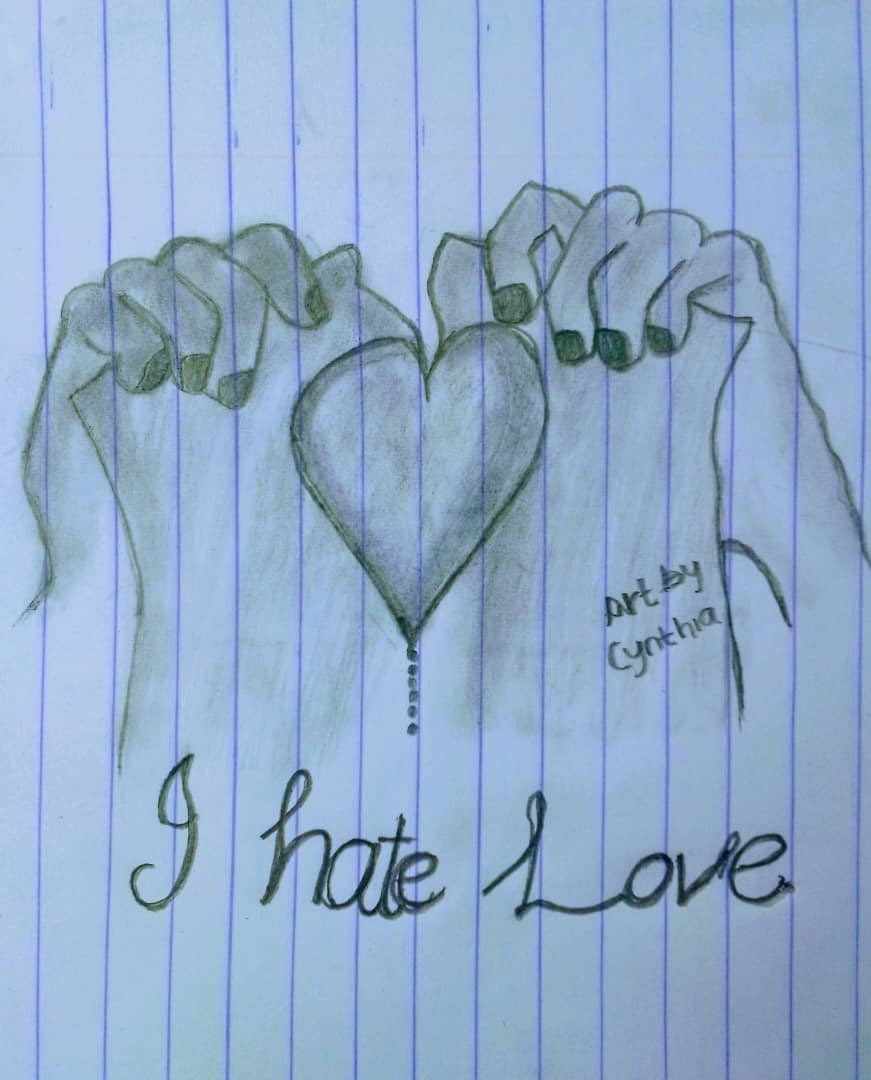 art by
Cynthia
I hate Love